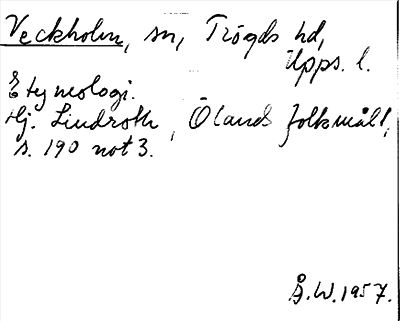 Veckholm, sn, Trögds hd,
Upps. l.
Etymologi.
Hj. Lindroth, Ölands folkmål 1,
s. 190 not 3.
Å.W. 1957.